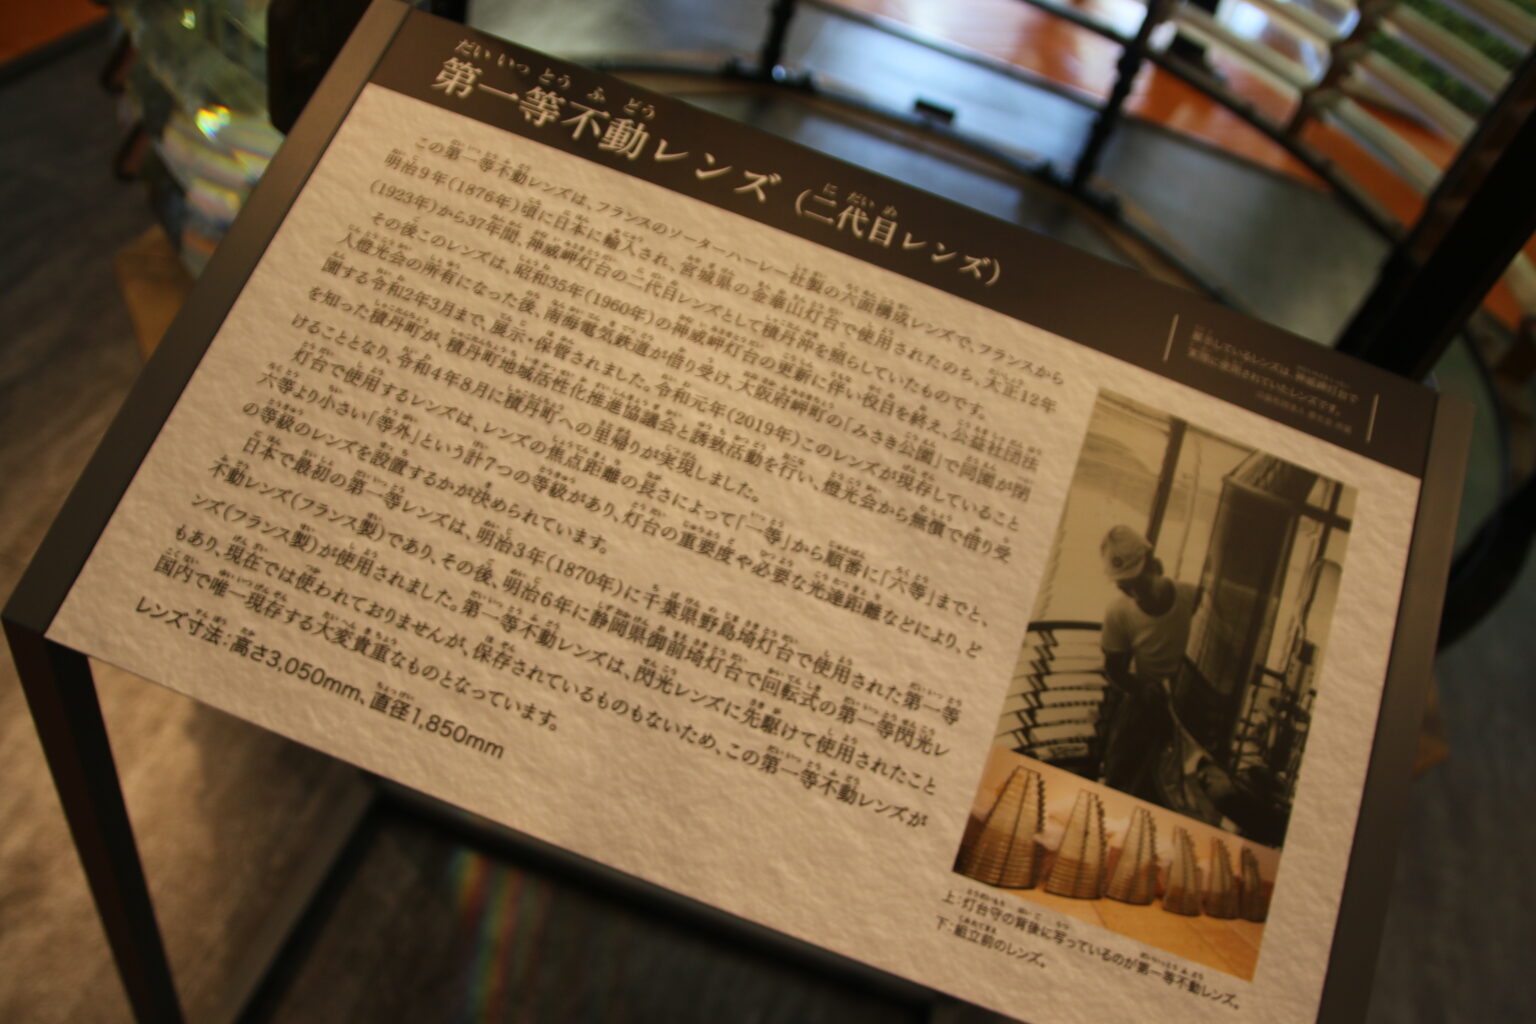 第一等不動レンズ(二代目レンズ)
この第一等不動レンズは、フランスのソーターハーレー社製の六面構成レンズで、フランスから
明治9年(1876年)頃に日本に輸入され、宮城県の金華山灯台で使用されたのち、大正12年
(1923年)から37年間、神威岬灯台の二代目レンズとして積丹沖を照らしていたものです。
その後このレンズは、昭和35年(1960年)の神威岬灯台の更新に伴い役目を終え、公益社団法
人燈光会の所有になった後、南海電気鉄道が借り受け、大阪府岬町の「みさき公園」で同園が閉
園する令和2年3月まで、展示・保管されました。令和元年(2019年)このレンズが現存していること
を知った積丹町が、積丹町地域活性化推進協議会と誘致活動を行い、燈光会から無償で借り受
けることとなり、令和4年8月に積丹町への里帰りが実現しました。
灯台で使用するレンズは、レンズの焦点距離の長さによって「一等」から順番に「六等」までと、
六等より小さい「等外」という計7つの等級があり、灯台の重要度や必要な光達距離などにより、ど
の等級のレンズを設置するかが決められています。
日本で最初の第一等レンズは、明治3年(1870年)に千葉県野島埼灯台で使用された第一等
不動レンズ(フランス製)であり、その後、明治6年に静岡県御前埼灯台で回転式の第一等閃光レ
ンズ(フランス製)が使用されました。第一等不動レンズは、閃光レンズに先駆けて使用されたこと
もあり、現在では使われておりませんが、保存されているものもないため、この第一等不動レンズが
国内で唯一現存する大変貴重なものとなっています。
レンズ寸法：高さ3,050mm、直径1,850mm
展示しているレンズは、神威岬灯台で
実際に使用されていたレンズです。
上：灯台守の背後に写っているのが第一等不動レンズ。
下：組立前のレンズ。